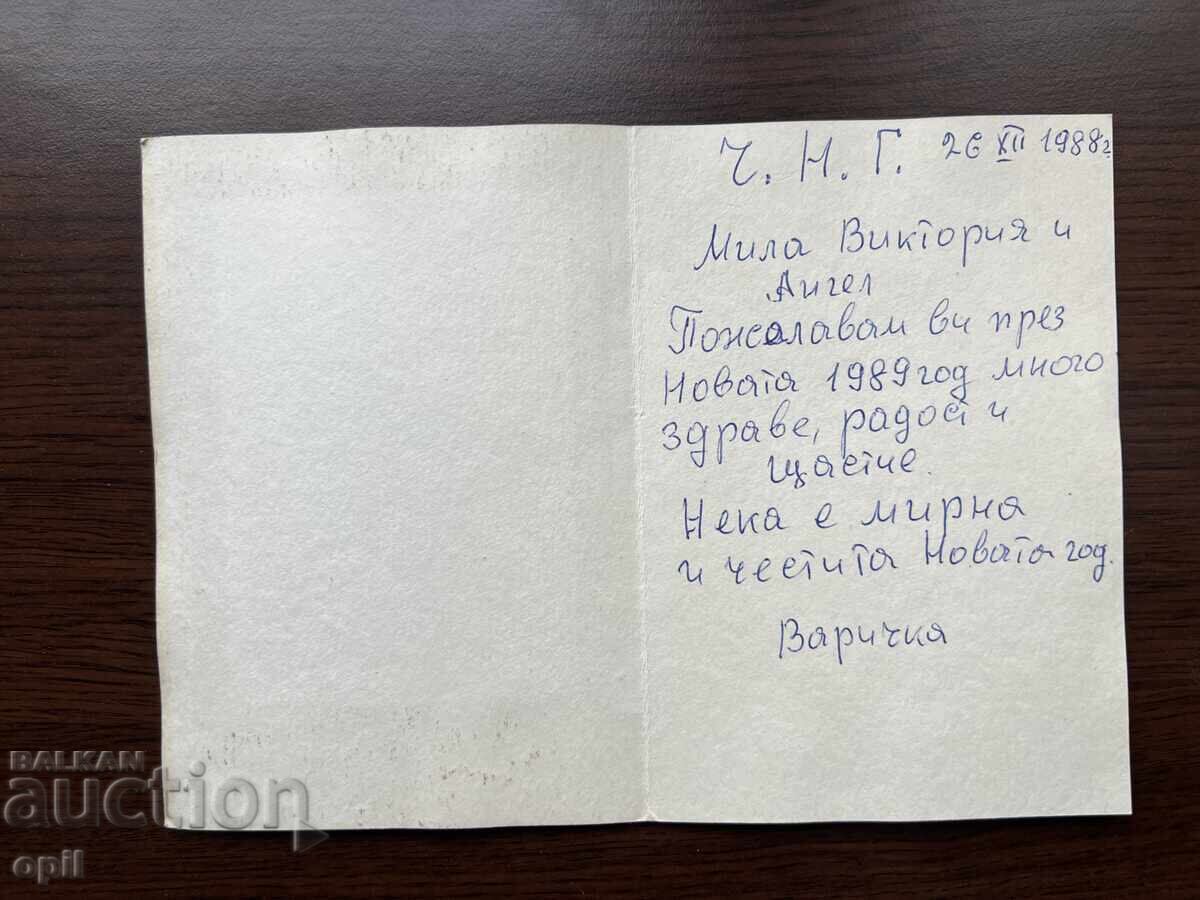 Ч. Н. Г. 26 XII 1988г
Мила Виктория и
Ангел
Пожелавам ви през
Новата 1989 год много
здраве, радост и
щастие.
Нека е мирна
и честита Новата год.
Варичка
BALKAN
auction
opil